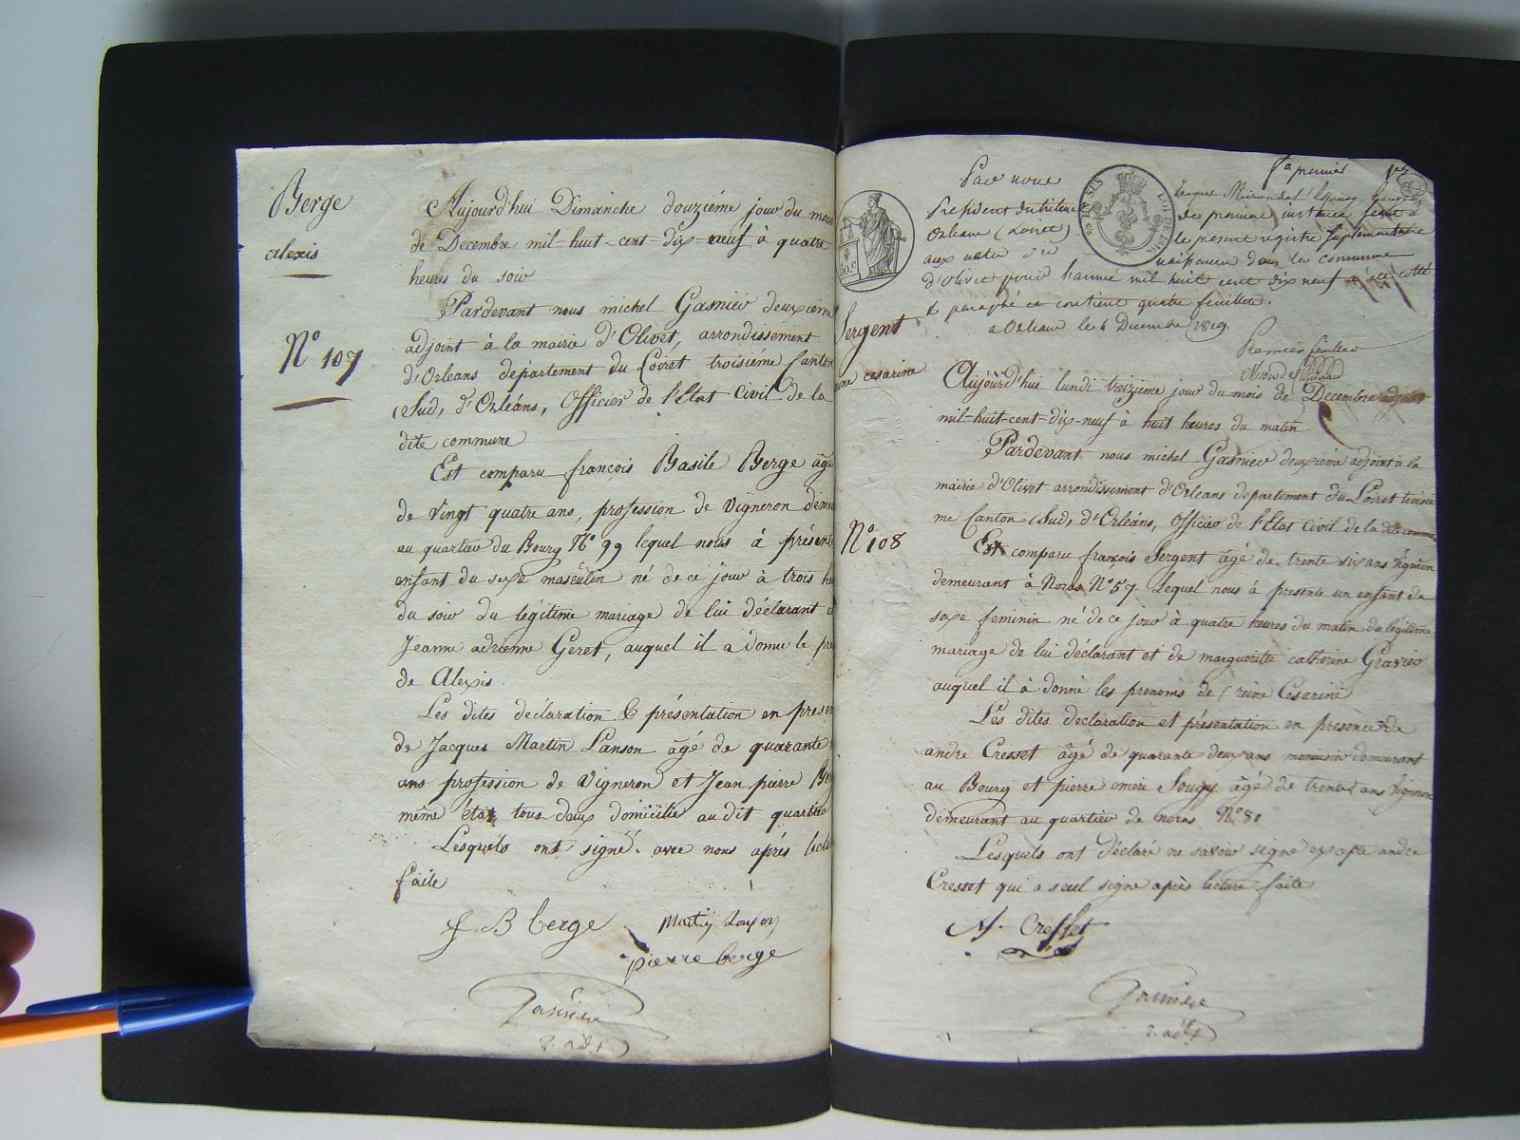 Berge
alexis
N° 107
Aujourd'hui Dimanche douziéme jour du mois
de Decembre mil-huit-cent-dix-neuf à quatre
heures du soir
Pardevant nous michel Gasnier deuxieme
adjoint à la mairie d'Olivet, arrondissement
d'Orleans département du Loiret troisiéme Canton
(Sud, d'Orléans, Officier de l'Etat Civil de la
dite commune
Est comparu françois Basile Berge âgé
de vingt quatre ans, profession de vigneron
au quartier du Bourg N° 99 lequel nous à présenté
enfant du sexe masculin né de ce jour à trois
du soir du légitime mariage de lui déclarant
Jeanne adrienne Geret, auquel il a donné le
de Alexis
Les dites déclaration & présentation en
de Jacques Martin Lanson âgé de quarante
ans profession de vigneron et Jean pierre
même état tous deux domicilié au dit quartier
Lesquels ont signé avec nous aprés
faite
f. B berge
pierre berge
2. adjt
Par nous
President du tribunal
Orleans (Loiret)
d'Olivet pour l'année mil huit cent dix neuf à été cotté
& paraphé et contient quatre feuilles.
a Orleans le 6 Decembre 1819
premier feuillet
Sergent
cesarine
N° 108
Aujourd'hui lundi treizieme jour du mois de Decembre
mil-huit-cent-dix-neuf à huit heures du matin
Pardevant nous michel Gasnier deuxieme adjoint à la
mairie d'Olivet arrondissement d'Orleans departement du Loiret troisie
me Canton (Sud, d'Orléans, Officier de l'Etat Civil de la
Est comparu françois Sergent âgé de trente six ans vigneron
demeurant à Noras N° 57. Lequel nous à presente un enfant de
sexe feminin né de ce jour à quatre heures du matin du légitime
mariage de lui déclarant et de marguerite catherine Gravier
auquel il à donné les prenoms de reine Cesarine
Les dites declaration et présentation en presence de
andre Cresset âgé de quarante deux ans menuisier demeurant
au Bourg et pierre omere Sougy âgé de trente ans vigneron
demeurant au quartier de noras N° 80
Lesquels ont déclaré ne savoir signe excepte andre
Cresset qui a seul signe après lecture faite
A. Cresset
2. adjt